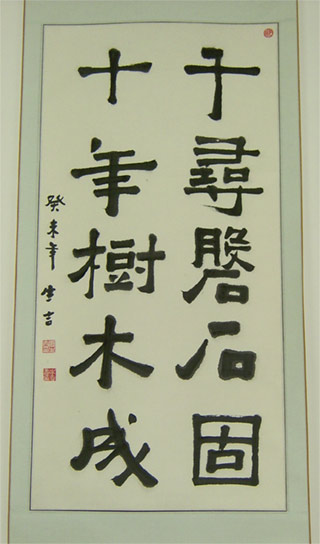 千尋磐石固
十年樹木成
癸未年 生吉